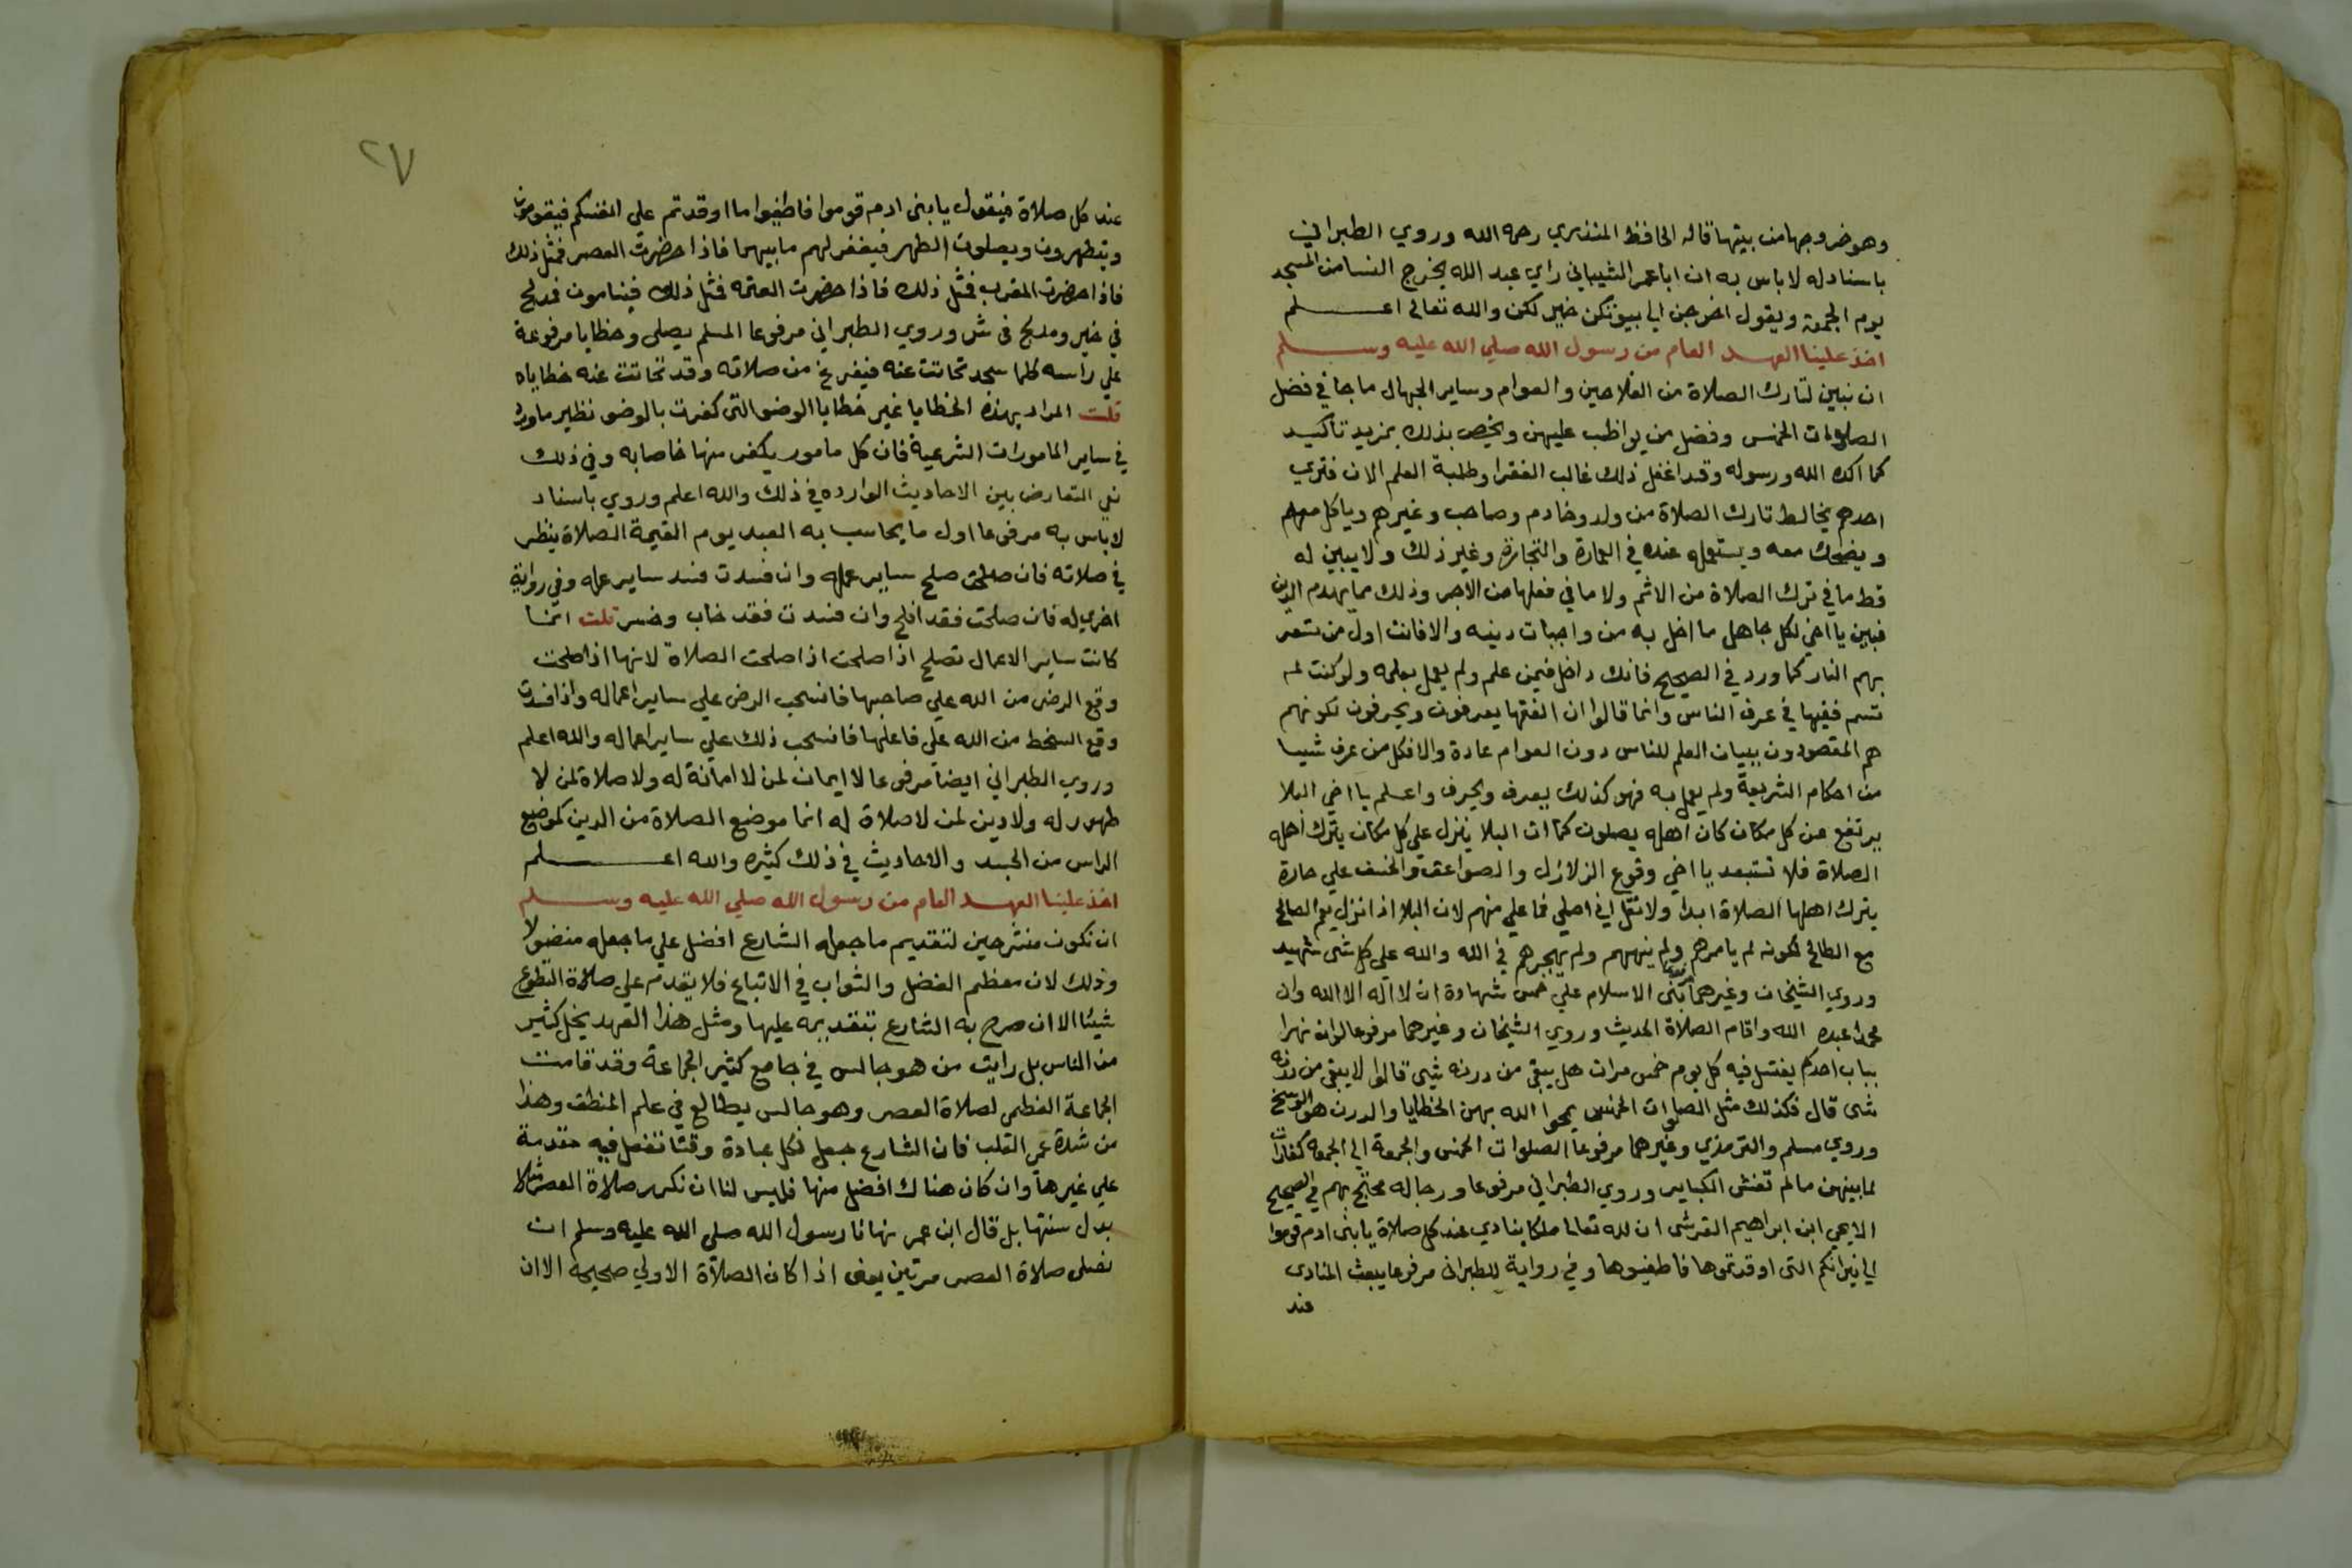 وهو خروجها من بيتها قاله الحافظ المنذري رحمه الله وروي الطبراني
باسناد له لا باس به ان ابا عمر الشيباني راي عبد الله يخرج النسا من المسجد
يوم الجمعة ويقول اخرجن الي بيوتكن خير لكن والله تعالى اعلم
اخذ علينا العهد العام من رسول الله صلي الله عليه وسلم
ان نبين لتارك الصلاة من الفلاحين والعوام وساير الجهال ما جا في فضل
الصلوات الخمس وفضل من يواظب عليهن ونخص بذلك بمزيد تاكيد
كما اكده الله ورسوله وقد اغفل ذلك غالب الفقرا وطلبة العلم الان فتري
احدهم يخالط تارك الصلاة من ولد وخادم وصاحب وغيرهم وياكل معهم
ويضحك معه ويستعمله عنده في العمارة والتجارة وغير ذلك ولا يبين له
قط ما في ترك الصلاة من الاثم ولا ما في فعلها من الاجر وذلك مما يهدم الدين
فبين يا اخي لكل جاهل ما اخل به من واجبات دينه والا فانت اول من تسعر
بهم النار كما ورد في الصحيح فانك داخل فيمن علم ولم يعمل بعلمه ولو كنت لم
تسم فقيها في عرف الناس وانما قالوا ان الفقها يعرفون ويحرفون لكونهم
هم المقصودون ببيان العلم للناس دون العوام عادة والا فكل من عرف شيا
من احكام الشريعة ولم يعمل به فهو كذلك يعرف ويحرف واعلم يا اخي البلا
يرتفع عن كل مكان كان اهله يصلون كما ان البلا ينزل علي كل مكان يترك اهله
الصلاة فلا تستبعد يا اخي وقوع الزلازل والصواعق والخسف علي حارة
يترك اهلها الصلاة ابدا ولا تقل اني اصلي فما علي منهم لان البلا اذا نزل يعم الصالح
مع الطالح لكونه لم يامرهم ولم ينههم ولم يهجرهم في الله والله علي كل شي شهيد
وروي الشيخان وغيرهما بني الاسلام علي خمس شهادة ان لا اله الا الله وان
محمدا عبده الله واقام الصلاة الحديث وروي الشيخان وغيرهما مرفوعا لو ان نهرا
بباب احدكم يغتسل فيه كل يوم خمس مرات هل يبقي من درنه شي قالوا لا يبقي من درنه
شي قال فكذلك مثل الصلوات الخمس يمحوا الله بهن الخطايا والدرن هو الوسخ
وروي مسلم والترمذي وغيرهما مرفوعا الصلوات الخمس والجمعة الي الجمعة كفارات
لما بينهن ما لم تغش الكباير وروي الطبراني مرفوعا ورجاله محتج بهم في الصحيح
الا يحي ابن ابراهيم القرشي ان لله تعالى ملكا ينادي عند كل صلاة يا بني ادم قوموا
الي نيرانكم التي اوقدتموها فاطفيوها وفي رواية للطبراني مرفوعا يبعث المنادي
عند
٢٧
عند كل صلاة فيقول يا بني ادم قوموا فاطفيوا ما اوقدتم علي انفسكم فيقومون
ويتطهرون ويصلون الظهر فيغفر لهم ما بينهما فاذا حضرت العصر فمثل ذلك
فاذا حضرت المغرب فمثل ذلك فاذا حضرت العتمه فمثل ذلك فينامون فمدلج
في خير ومدلج في شر وروي الطبراني مرفوعا المسلم يصلي وخطايا مرفوعة
علي راسه كلما سجد تحاتت عنه فيفرغ من صلاته وقد تحاتت عنه خطاياه
قلت المراد بهذه الخطايا غير خطايا الوضو التي كفرت بالوضو نظير ما ورد
في ساير المامورات الشرعية فان كل مامور يكفر منها خاصا به وفي ذلك
نفي التعارض بين الاحاديث الوارده في ذلك والله اعلم وروي باسناد
لا باس به مرفوعا اول ما يحاسب به العبد يوم القيمة الصلاة ينظر
في صلاته فان صلحت صلح ساير عمله وان فسدت فسد ساير عمله وفي رواية
اخري له فان صلحت فقد افلح وان فسدت فقد خاب وخسر قلت انما
كانت ساير الاعمال تصلح اذا صلحت اذا صلحت الصلاة لانها اذا صلحت
وقع الرضي من الله علي صاحبها فانسحب الرضي علي ساير اعماله واذا فسدت
وقع السخط من الله علي فاعلها فانسحب ذلك علي ساير اعماله والله اعلم
وروي الطبراني ايضا مرفوعا لا ايمان لمن لا امانة له ولا صلاة لمن لا
طهور له ولا دين لمن لا صلاة له انما موضع الصلاة من الدين كموضع
الراس من الجسد والاحاديث في ذلك كثيره والله اعلم
اخذ علينا العهد العام من رسول الله صلي الله عليه وسلم
ان نكون منشرحين لتقديم ما جعله الشارع افضل علي ما جعله مفضولا
وذلك لان معظم الفضل والثواب في الاتباع فلا يقدم علي صلاة التطوع
شيئا الا ان صرح به الشارع بتقديمه عليها ومثل هذا العهد يخل كثير
من الناس بل رايت من هو جالس في جامع كثير الجماعة وقد قامت
الجماعة العظمي لصلاة العصر وهو جالس يطالع في علم المنطق وهذا
من شدة عمي القلب فان الشارع جعل لكل عبادة وقتا تفعل فيه مقدمة
علي غيرها وان كان هناك افضل منها فليس لنا ان نكرر صلاة العصر مثلا
بدل سنتها بل قال ابن عمر نهانا رسول الله صلي الله عليه وسلم ان
نصلي صلاة العصر مرتين يعني اذا كان الصلاة الاولي صحيحة الا ان